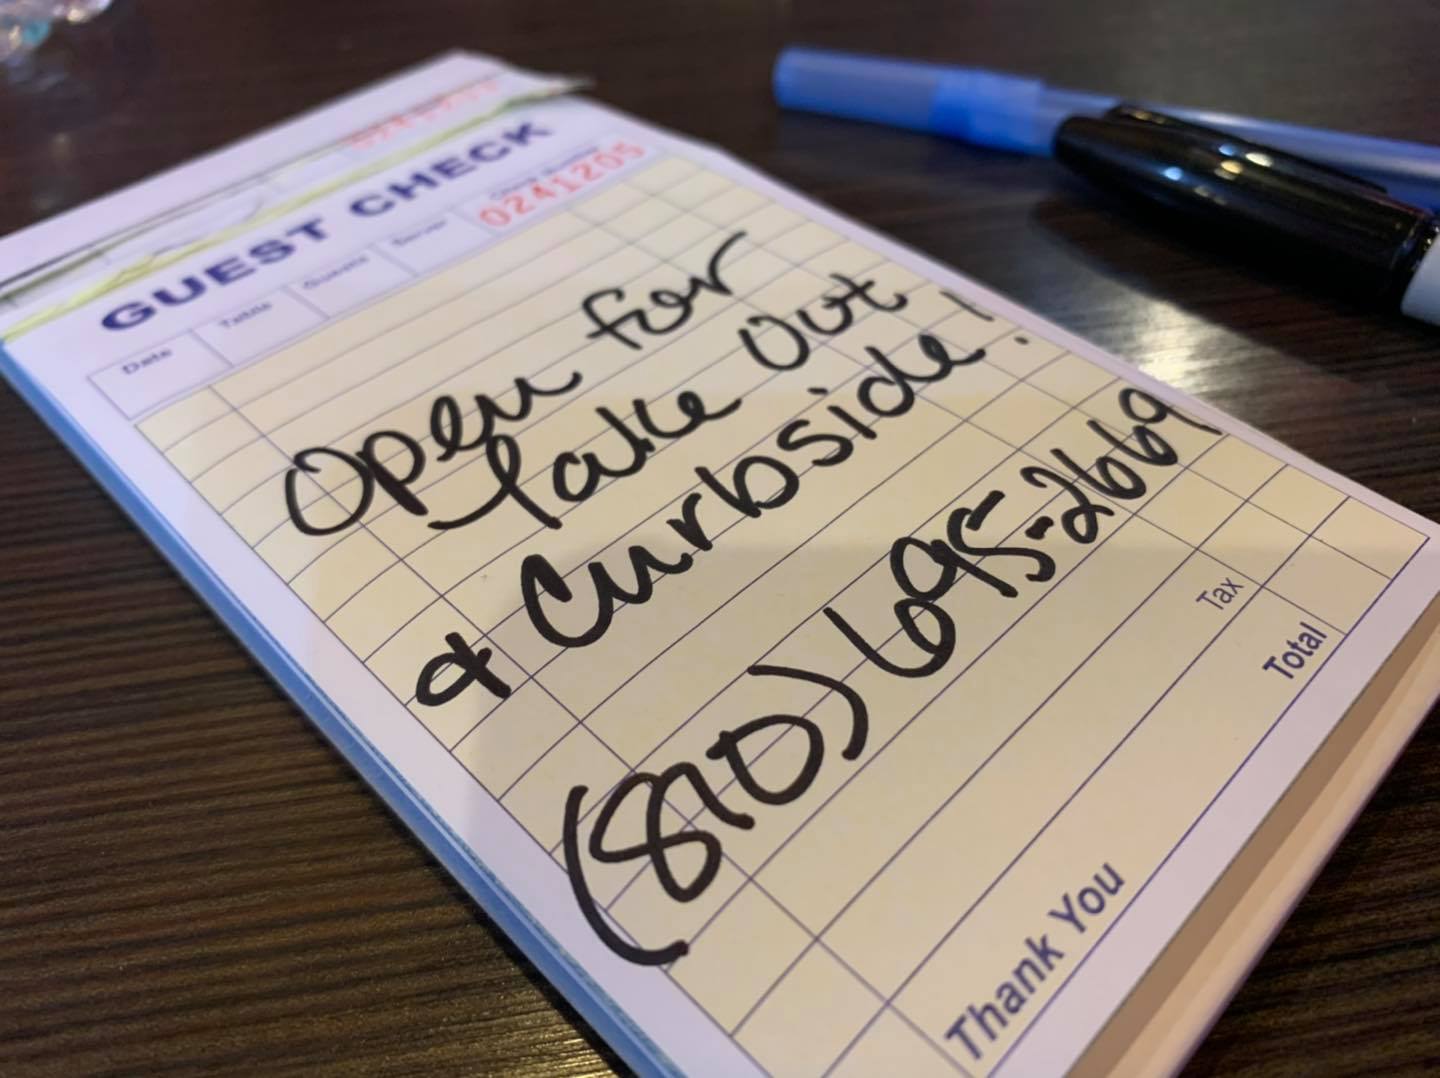 GUEST CHECK
Date Table Guests Server Check Number
0241205
Open for
Take Out
& Curbside!
(810) 695-2669
Tax
Total
Thank You